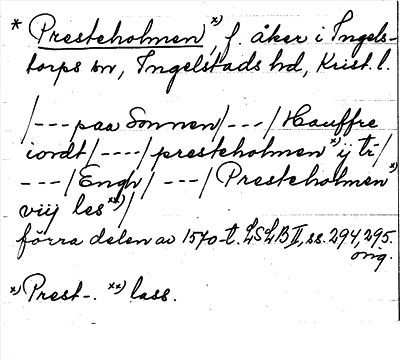 * Presteholmen, x) f. åker i Ingels-
torps sn, Ingelstads hd, Krist. l.
/--- paa Sonnen/---/ Hauffre
iordt/----/ presteholmen x) ij tr/
---/ Engh/ ---/ Presteholmen x)
viij les xx)/
förra delen av 1570-t. LSLB II, ss. 294, 295.
orig.
x) Prest-. xx) lass.